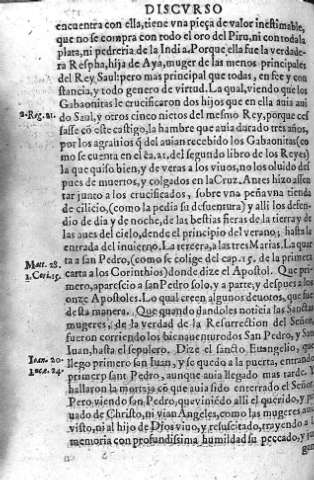 DISCVRSO
encuentra con ella, tiene vna pieça de valor inestimable,
que no se compra con todo el oro del Piru, ni con toda la
plata, ni pedreria de la India. Porque ella fue la verdade-
ra Respha, hija de Aya, muger de las menos principales
del Rey Saul: pero mas principal que todas, en fee y con
stancia, y todo genero de virtud. La qual, viendo que los
Gabaonitas le crucificaron dos hijos que en ella auia aui
2. Reg. 21. do Saul, y otros cinco nietos del mesmo Rey, porque ces
sasse cõ este castigo, la hambre que auia durado tres años,
por los agrauios q̃ del auian recebido los Gabaonitas (co
mo se cuenta en el ca. 21. del segundo libro de los Reyes)
la que quiso bien, y de veras a los viuos, no los oluido des
pues de muertos, y colgados en la Cruz. Antes hizo assen
tar junto a los crucificados, sobre vna peña vna tienda
de cilicio, (como la pedia su desuentura) y alli los defen-
dio de dia y de noche, de las bestias fieras de la tierra y de
las aues del cielo, dende el principio del verano, hasta la
entrada del inuierno. La tercera, a las tres Marias. La quar
Matt. 28. ta a san Pedro, (como se colige del cap. 15. de la primera
1. Cori. 15. carta a los Corinthios) donde dize el Apostol. Que pri-
mero, aparescio a san Pedro solo, y a parte, y despues a los
onze Apostoles. Lo qual creen algunos deuotos, que fue
desta manera. Que quando dandoles noticia las Sanctas
mugeres, de la verdad de la Resurrection del Señor,
fueron corriendo los bienauenturados San Pedro, y San
Iuan, hasta el sepulcro. Dize el sancto Euangelio, que
Ioan. 20. llego primero san Iuan, y se quedo a la puerta, entrando
Lucæ. 24. primero sant Pedro, aunque auia llegado mas tarde. Y
hallaron la mortaja cõ que auia sido enterrado el Señor.
Pero viendo san Pedro, que viniẽdo alli el querido, y pri
uado de Christo, ni vian Angeles, como las mugeres auiã
visto, ni al hijo de Dios viuo, y resuscitado, trayendo a la
memoria con profundissima humildad su peccado, y su